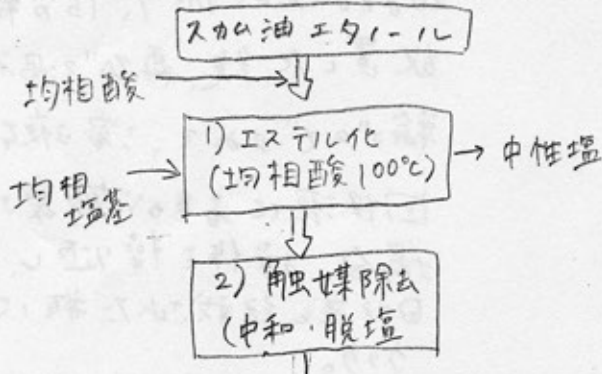 スカム油 エタノール
均相酸
1) エステル化
(均相酸100℃)
中性塩
均相
塩基
2) 触媒除去
(中和・脱塩